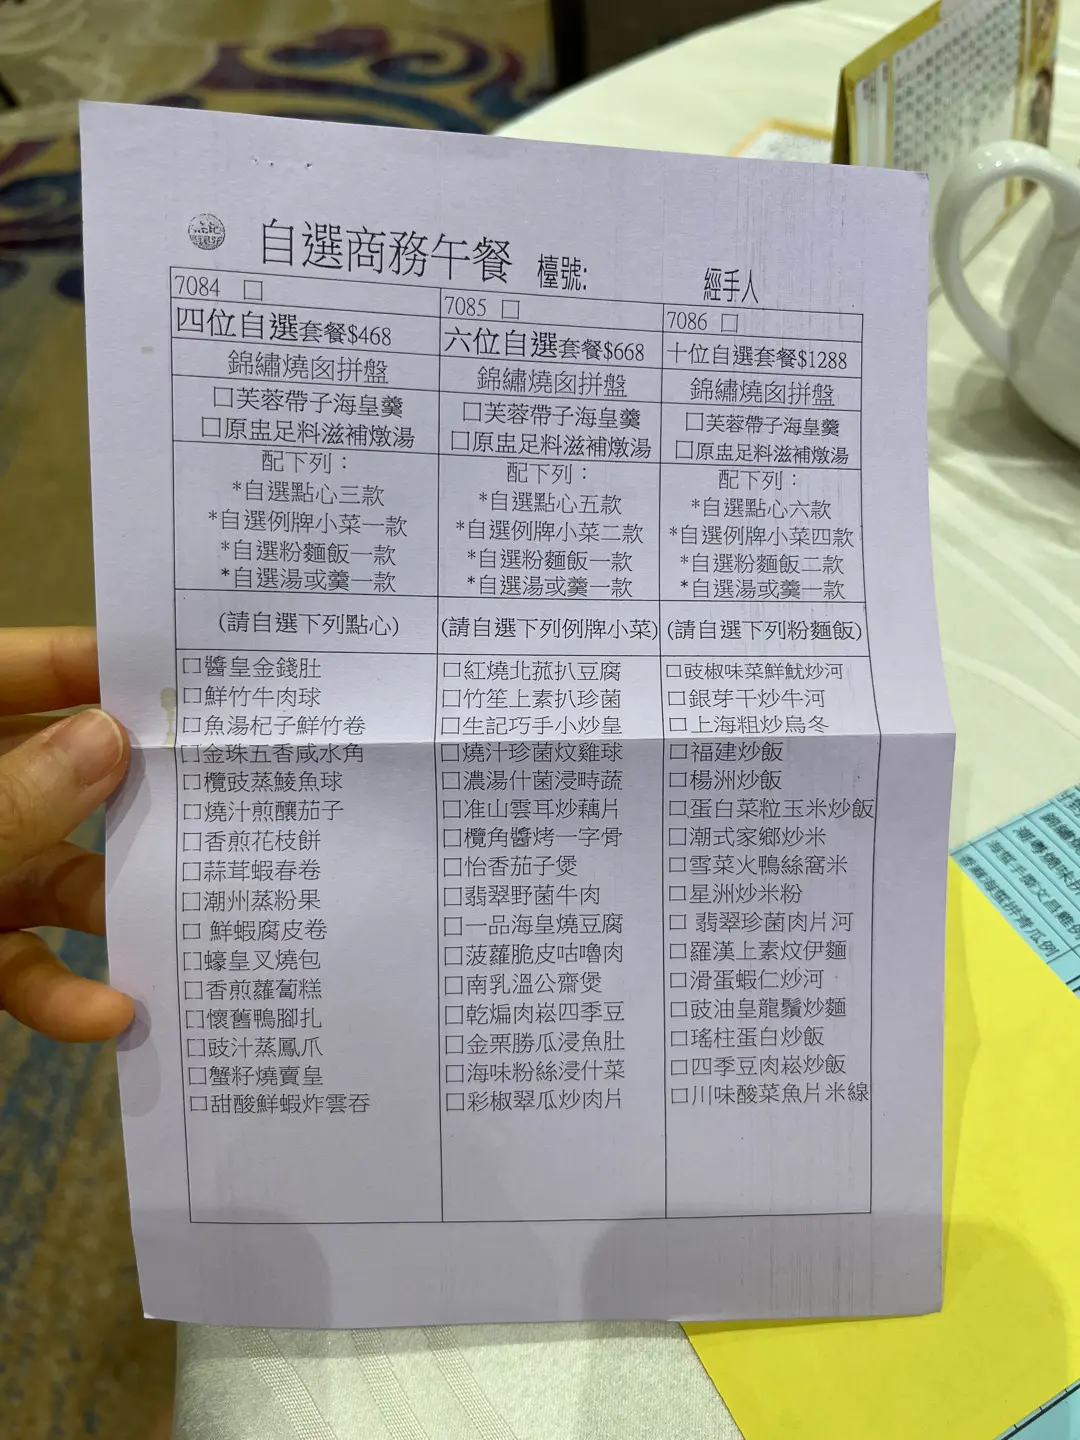 自選商務午餐 檯號: 經手人
7084 □
四位自選套餐$468
錦繡燒囱拼盤
□芙蓉帶子海皇羹
□原盅足料滋補燉湯
配下列：
*自選點心三款
*自選例牌小菜一款
*自選粉麵飯一款
*自選湯或羹一款
7085 □
六位自選套餐$668
錦繡燒囱拼盤
□芙蓉帶子海皇羹
□原盅足料滋補燉湯
配下列：
*自選點心五款
*自選例牌小菜二款
*自選粉麵飯一款
*自選湯或羹一款
7086 □
十位自選套餐$1288
錦繡燒囱拼盤
□芙蓉帶子海皇羹
□原盅足料滋補燉湯
配下列：
*自選點心六款
*自選例牌小菜四款
*自選粉麵飯二款
*自選湯或羹一款
(請自選下列點心)
□醬皇金錢肚
□鮮竹牛肉球
□魚湯杞子鮮竹卷
□金珠五香咸水角
□欖豉蒸鯪魚球
□燒汁煎釀茄子
□香煎花枝餅
□蒜茸蝦春卷
□潮州蒸粉果
□ 鮮蝦腐皮卷
□蠔皇叉燒包
□香煎蘿蔔糕
□懷舊鴨腳扎
□豉汁蒸鳳爪
□蟹籽燒賣皇
□甜酸鮮蝦炸雲吞
(請自選下列例牌小菜)
□紅燒北菰扒豆腐
□竹笙上素扒珍菌
□生記巧手小炒皇
□燒汁珍菌炆雞球
□濃湯什菌浸時蔬
□准山雲耳炒藕片
□欖角醬烤一字骨
□怡香茄子煲
□翡翠野菌牛肉
□一品海皇燒豆腐
□菠蘿脆皮咕嚕肉
□南乳溫公齋煲
□乾煸肉崧四季豆
□金栗勝瓜浸魚肚
□海味粉絲浸什菜
□彩椒翠瓜炒肉片
(請自選下列粉麵飯)
□豉椒味菜鮮魷炒河
□銀芽干炒牛河
□上海粗炒烏冬
□福建炒飯
□楊洲炒飯
□蛋白菜粒玉米炒飯
□潮式家鄉炒米
□雪菜火鴨絲窩米
□星洲炒米粉
□ 翡翠珍菌肉片河
□羅漢上素炆伊麵
□滑蛋蝦仁炒河
□豉油皇龍鬚炒麵
□瑤柱蛋白炒飯
□四季豆肉崧炒飯
□川味酸菜魚片米線